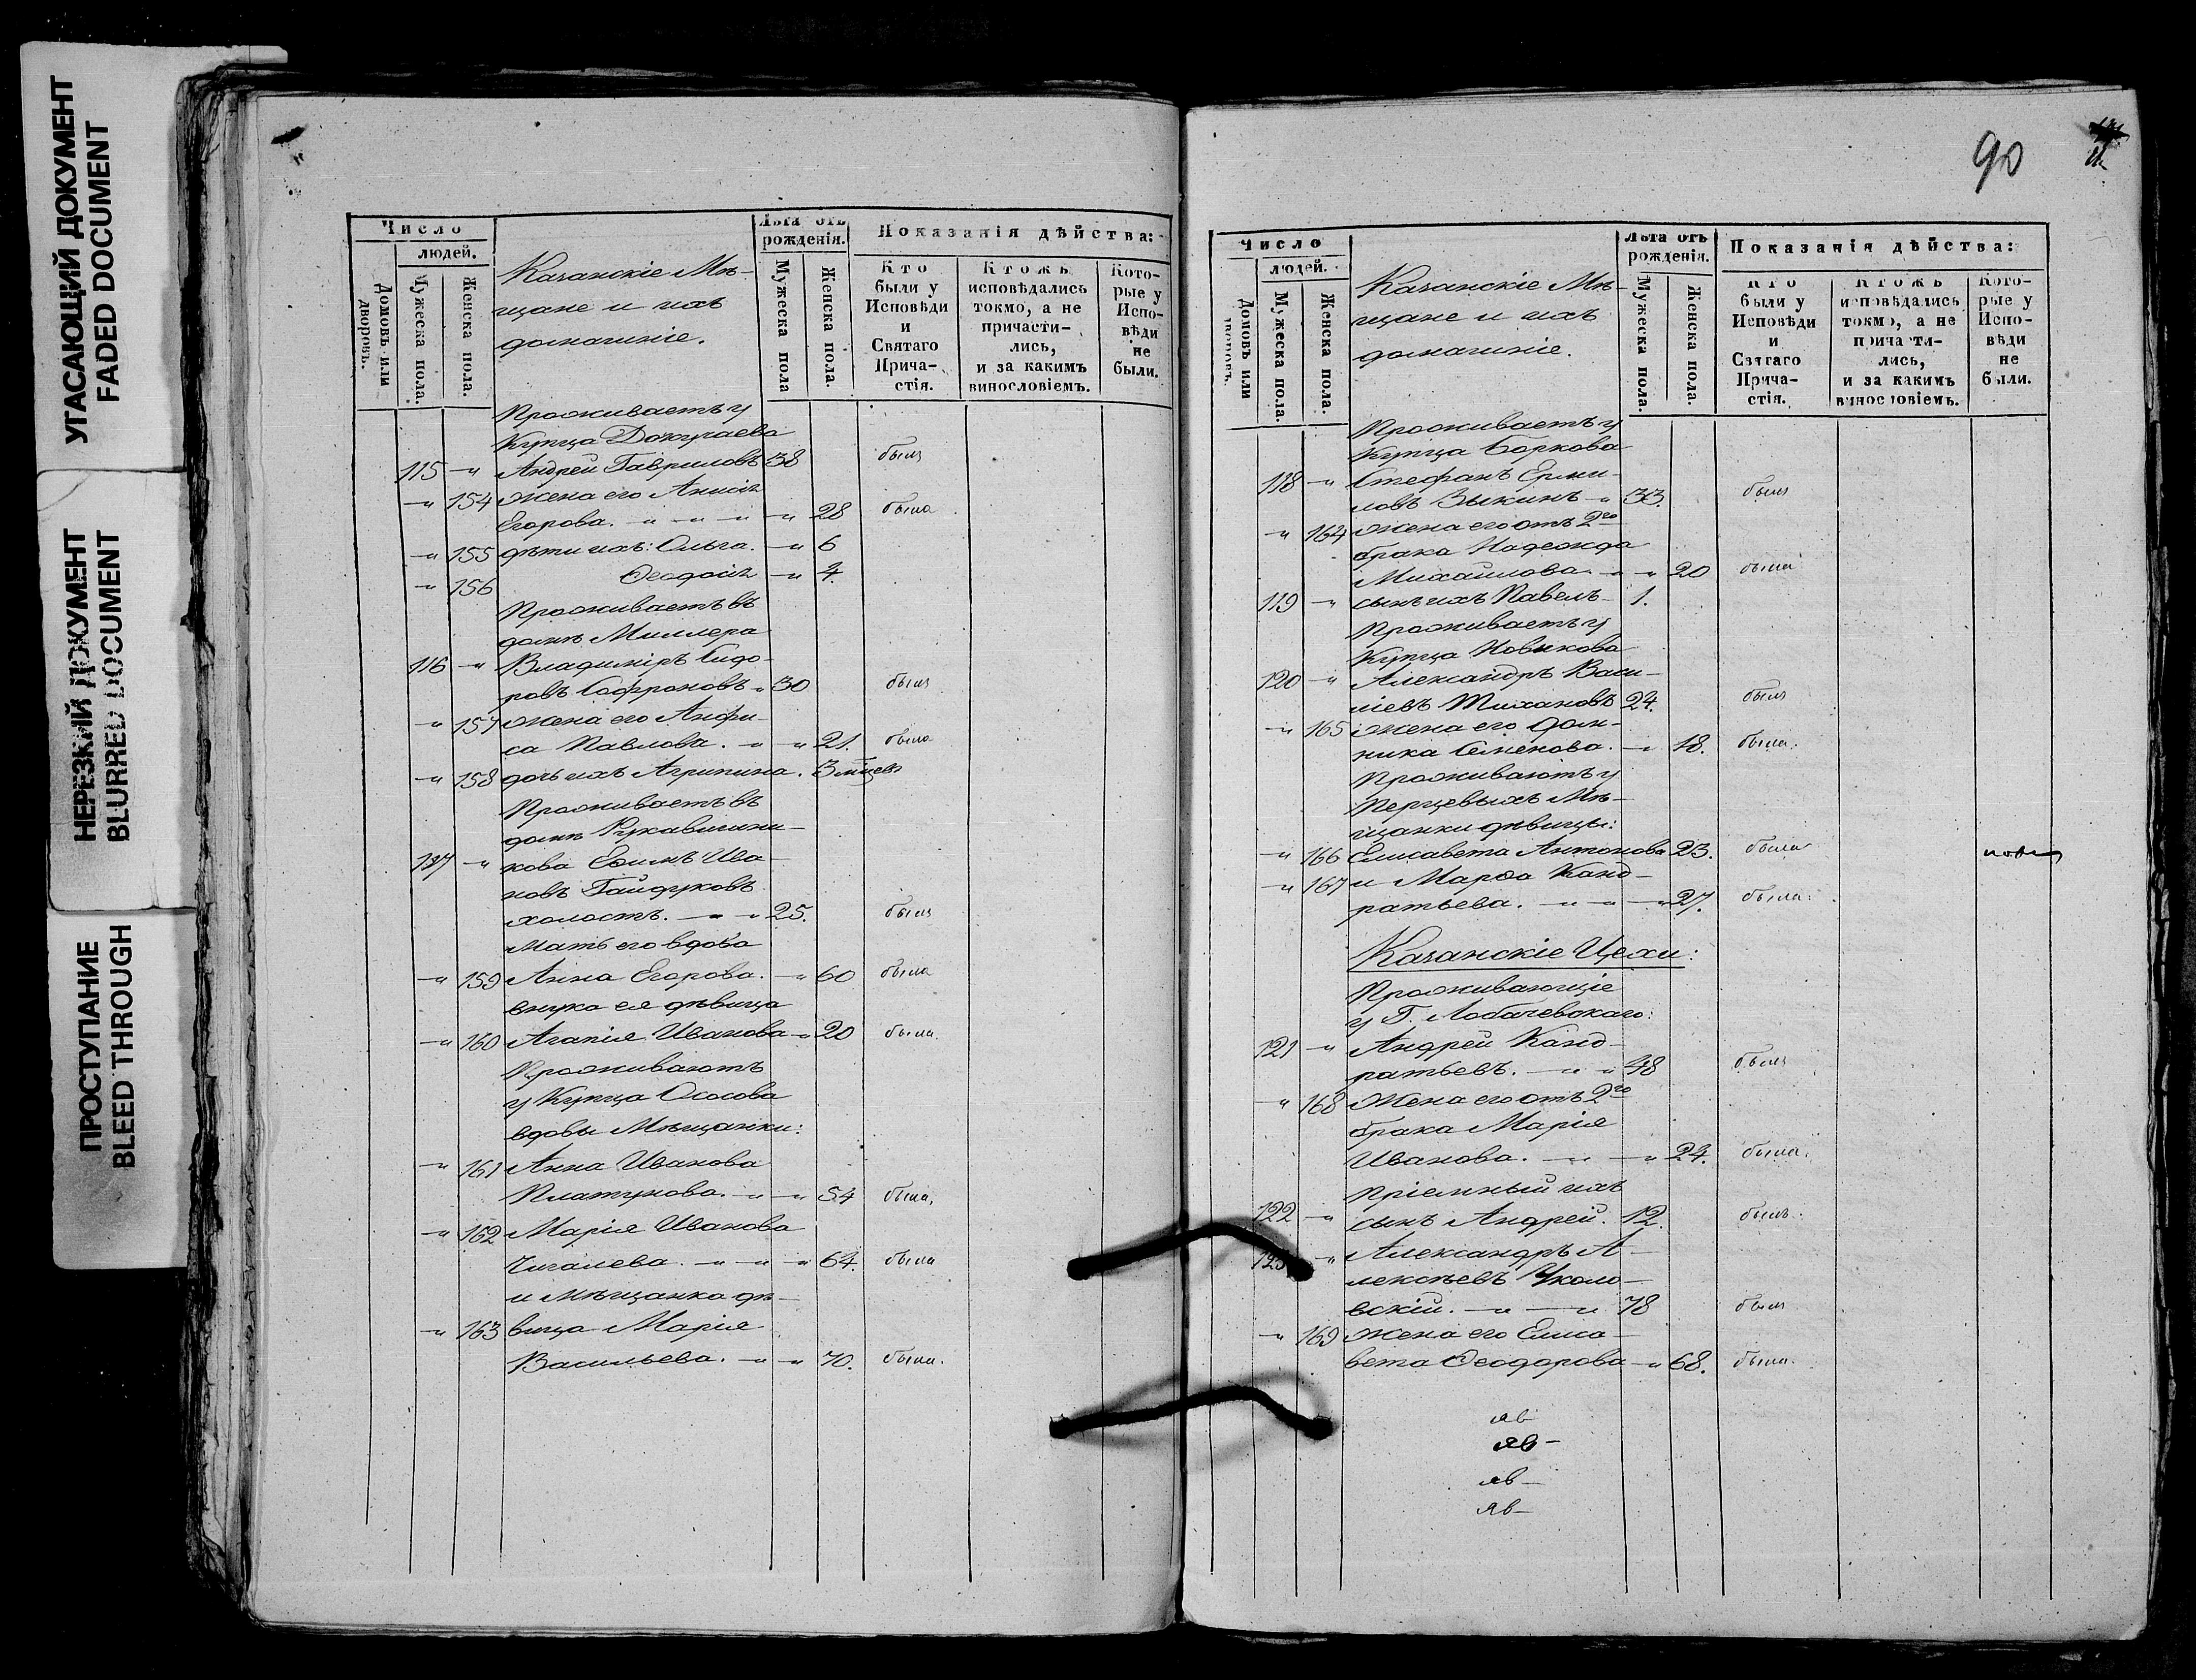 УГАСАЮЩИЙ ДОКУМЕНТ
FADED DOCUMENT
НЕРЕЗКИЙ ДОКУМЕНТ
BLURRED DOCUMENT
ПРОСТУПАНИЕ
BLEED THROUGH
Число
людей.
Домовъ или дворовъ.
Мужеска пола.
Женска пола.
Казанскіе Мѣ-
щане и ихъ
домашніе.
Лѣта отъ
рожденія.
Мужеска пола
Женска пола.
Показанія дѣйства:
Кто
были у
Исповѣди
и
Святаго
Прича-
стія.
Ктожъ
исповѣдались
токмо, а не
причасти-
лись,
и за какимъ
винословіемъ.
Кото-
рые у
Испо-
вѣди
не
были.
Проживаетъ у
Купца Докучаева
115 -„ Андрей Гавриловъ 38 былъ
-„ 154 жена его Анисія
Егорова. -„ -„ -„ -„ 28 была
-„ 155 дѣти ихъ: Ольга. -„ 6
-„ 156 Ѳеодосія -„ 4.
Проживаетъ въ
домѣ Миллера
116 -„ Владиміръ Сидо-
ровъ Софроновъ -„ 30 былъ
-„ 157 жена его Анфи-
са Павлова. -„ -„ 21. была
-„ 158 дочь ихъ Агрипина. 3 мѣсяцев
Проживаетъ въ
домѣ Рукавишни-
117 -„ кова Ефимъ Ива-
новъ Гайфуковъ
холостъ. -„ -„ 25. былъ
Мать его вдова
-„ 159 Анна Егорова. -„ 60 была
внука ея дѣвица
-„ 160 Агапія Иванова -„ 20 была.
Проживаютъ
у Купца Ососова
вдовы Мѣщанки:
-„ 161 Анна Иванова
Платунова. -„ -„ 54 была,
-„ 162 Марія Иванова
Чигалева. -„ -„ -„ 64. была
и мѣщанка дѣ-
-„ 163 вица Марія
Васильева. -„ -„ 70. была.
90
Число
людей.
Домовъ или дворовъ.
Мужеска пола.
Женска пола.
Казанскіе Мѣ-
щане и ихъ
домашніе.
Лѣта отъ
рожденія.
Мужеска пола.
Женска пола.
Показанія дѣйства:
Кто
были у
Исповѣди
и
Святаго
Прича-
стія.
Ктожъ
исповѣдались
токмо, а не
причасти-
лись,
и за какимъ
винословіемъ.
Кото-
рые у
Испо-
вѣди
не
были.
Проживаетъ у
Купца Боркова
118 -„ Стефанъ Ерми-
ловъ Зыкинъ -„ 33. былъ
-„ 164 жена его отъ 2го
брака Надежда
Михайлова. -„ -„ 20 была
119 -„ сынъ ихъ Павелъ- 1.
Проживаетъ у
Купца Новикова
120 -„ Александръ Васи-
ліевъ Тихановъ 24. былъ
-„ 165 жена его Дом-
ника Семенова. -„ 18. была.
Проживаютъ у
Перцевыхъ Мѣ-
щанки дѣвицы:
-„ 166 Елисавета Антонова 23. была
-„ 167 и Марѳа Канд-
ратьева. -„ -„ -„ 27. была.
Казанскіе Цехи:
Проживающіе
у Г. Лобачевскаго:
121 -„ Андрей Канд-
ратьевъ. -„ -„ 48 былъ
-„ 168 Жена его отъ 2го
брака Марія
Иванова. -„ -„ 24. была.
Пріемный ихъ
122 -„ сынъ Андрей. 12. былъ.
123 -„ Александръ А-
лексѣевъ Уколо-
вскій. -„ -„ 78 былъ
-„ 169 жена его Елиса-
вета Ѳеодорова -„ 68. была.
яв
яв-
яв-
яв-